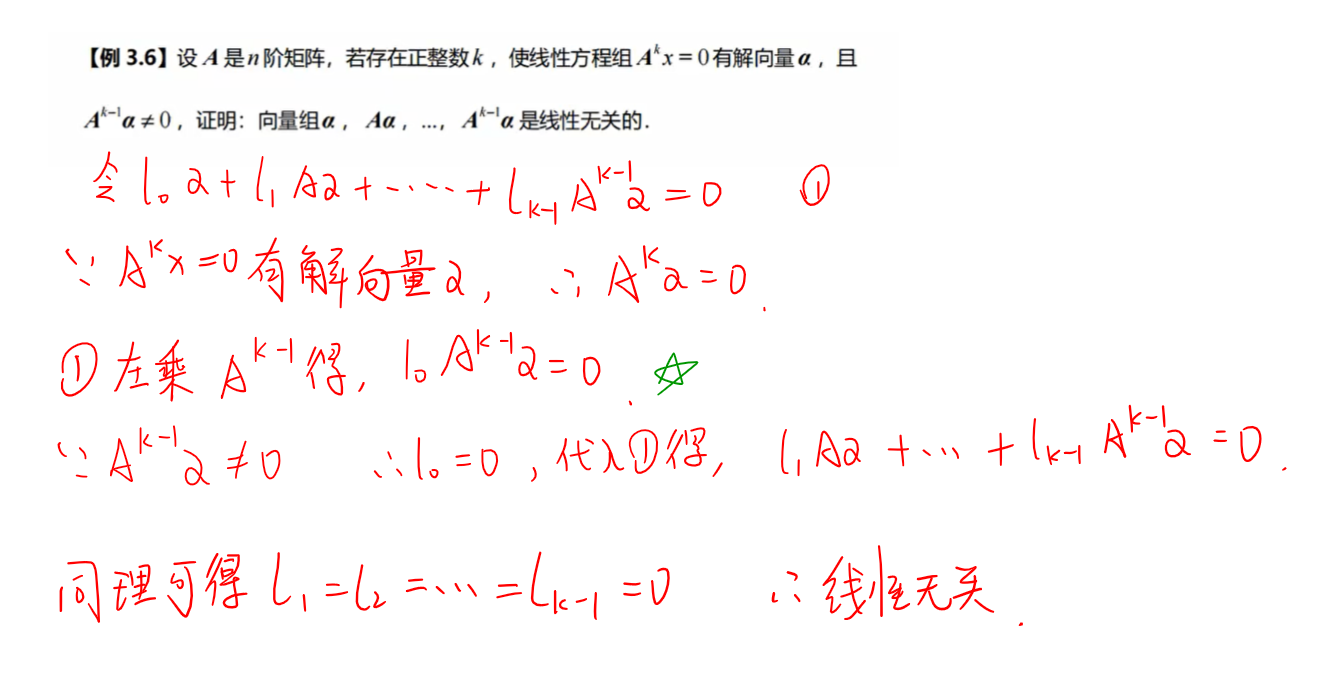 【例 3.6】设 A 是 n 阶矩阵，若存在正整数 k ，使线性方程组 Aᵏx = 0 有解向量 α ，且
Aᵏ⁻¹α ≠ 0 ，证明：向量组 α ， Aα ， …， Aᵏ⁻¹α 是线性无关的.
令 l₀α + l₁Aα + …… + lₖ₋₁Aᵏ⁻¹α = 0 ①
∵ Aᵏx = 0 有解向量α, ∴ Aᵏα = 0.
①左乘 Aᵏ⁻¹ 得, l₀Aᵏ⁻¹α = 0. ☆
∵ Aᵏ⁻¹α ≠ 0 ∴ l₀ = 0, 代入①得, l₁Aα + … + lₖ₋₁Aᵏ⁻¹α = 0.
同理可得 l₁ = l₂ = … = lₖ₋₁ = 0 ∴ 线性无关.